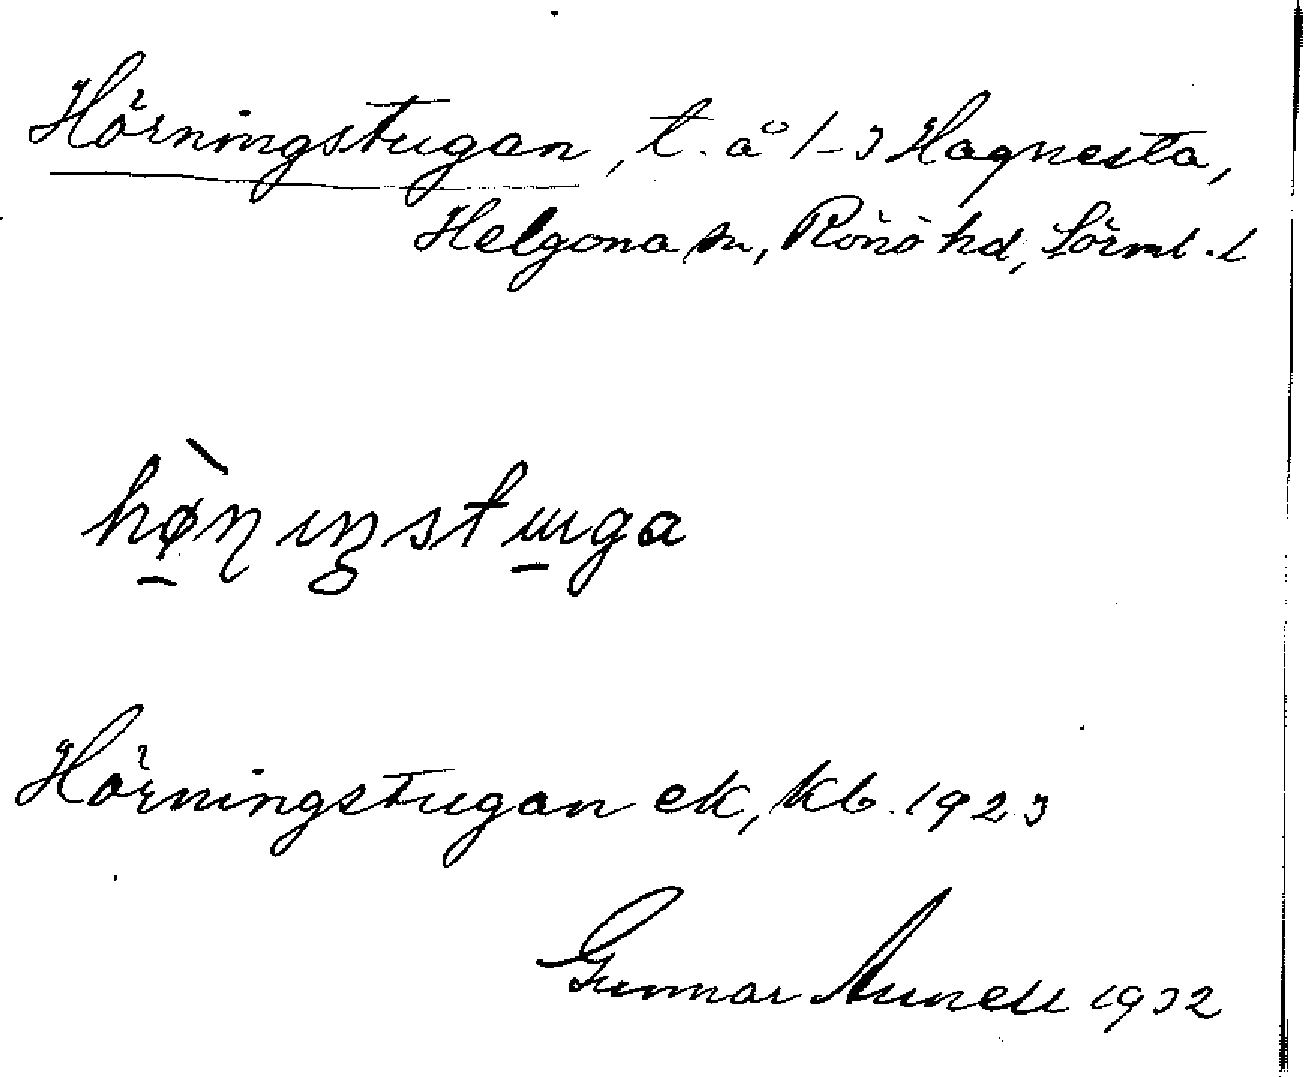 Hörningstugan, t. å 1-3 Hagnesta,
Helgona sn, Rönö hd, Sörml. l
hø̀ɳıŋstɯga
Hörningstugan ek, kb. 1923
Gunnar 1932